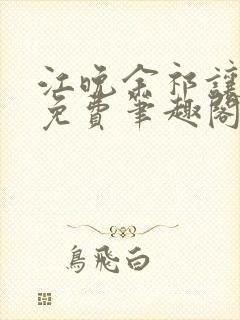 江晚余祁让
免费筆趣阁
鳥飛白